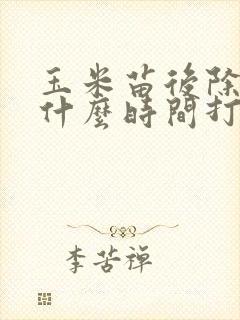 玉米苗後除
什麼時間打
李苦禪